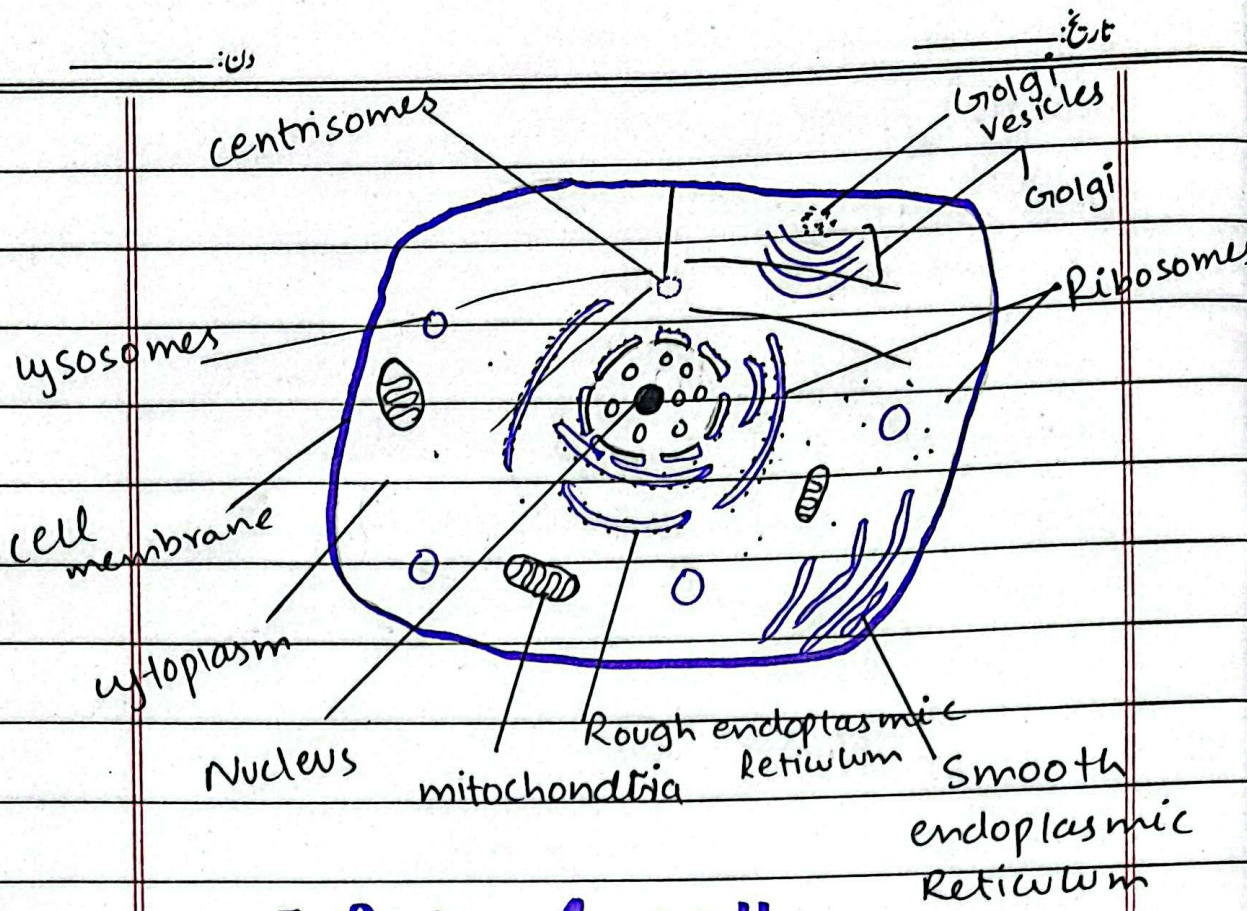 تاریخ:
دن:
centrisomes
Golgi
vesicles
Golgi
Ribosomes
lysosomes
cell
membrane
cytoplasm
Nucleus
mitochondria
Rough endoplasmic
Reticulum
Smooth
endoplasmic
Reticulum